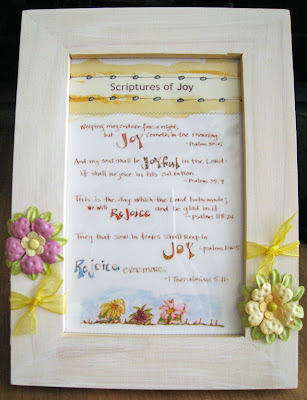 Scriptures of Joy
Weeping may endure for a night,
but Joy cometh in the morning.
- Psalms 30:5
And my soul shall be Joyful in the Lord:
it shall rejoice in his salvation.
- Psalms 35:9
This is the day which the Lord hath made;
we will Rejoice and be glad in it.
- Psalms 118:24
They that sow in tears shall reap in
Joy - Psalms 126:5
Rejoice evermore.
- 1 Thessalonians 5:16